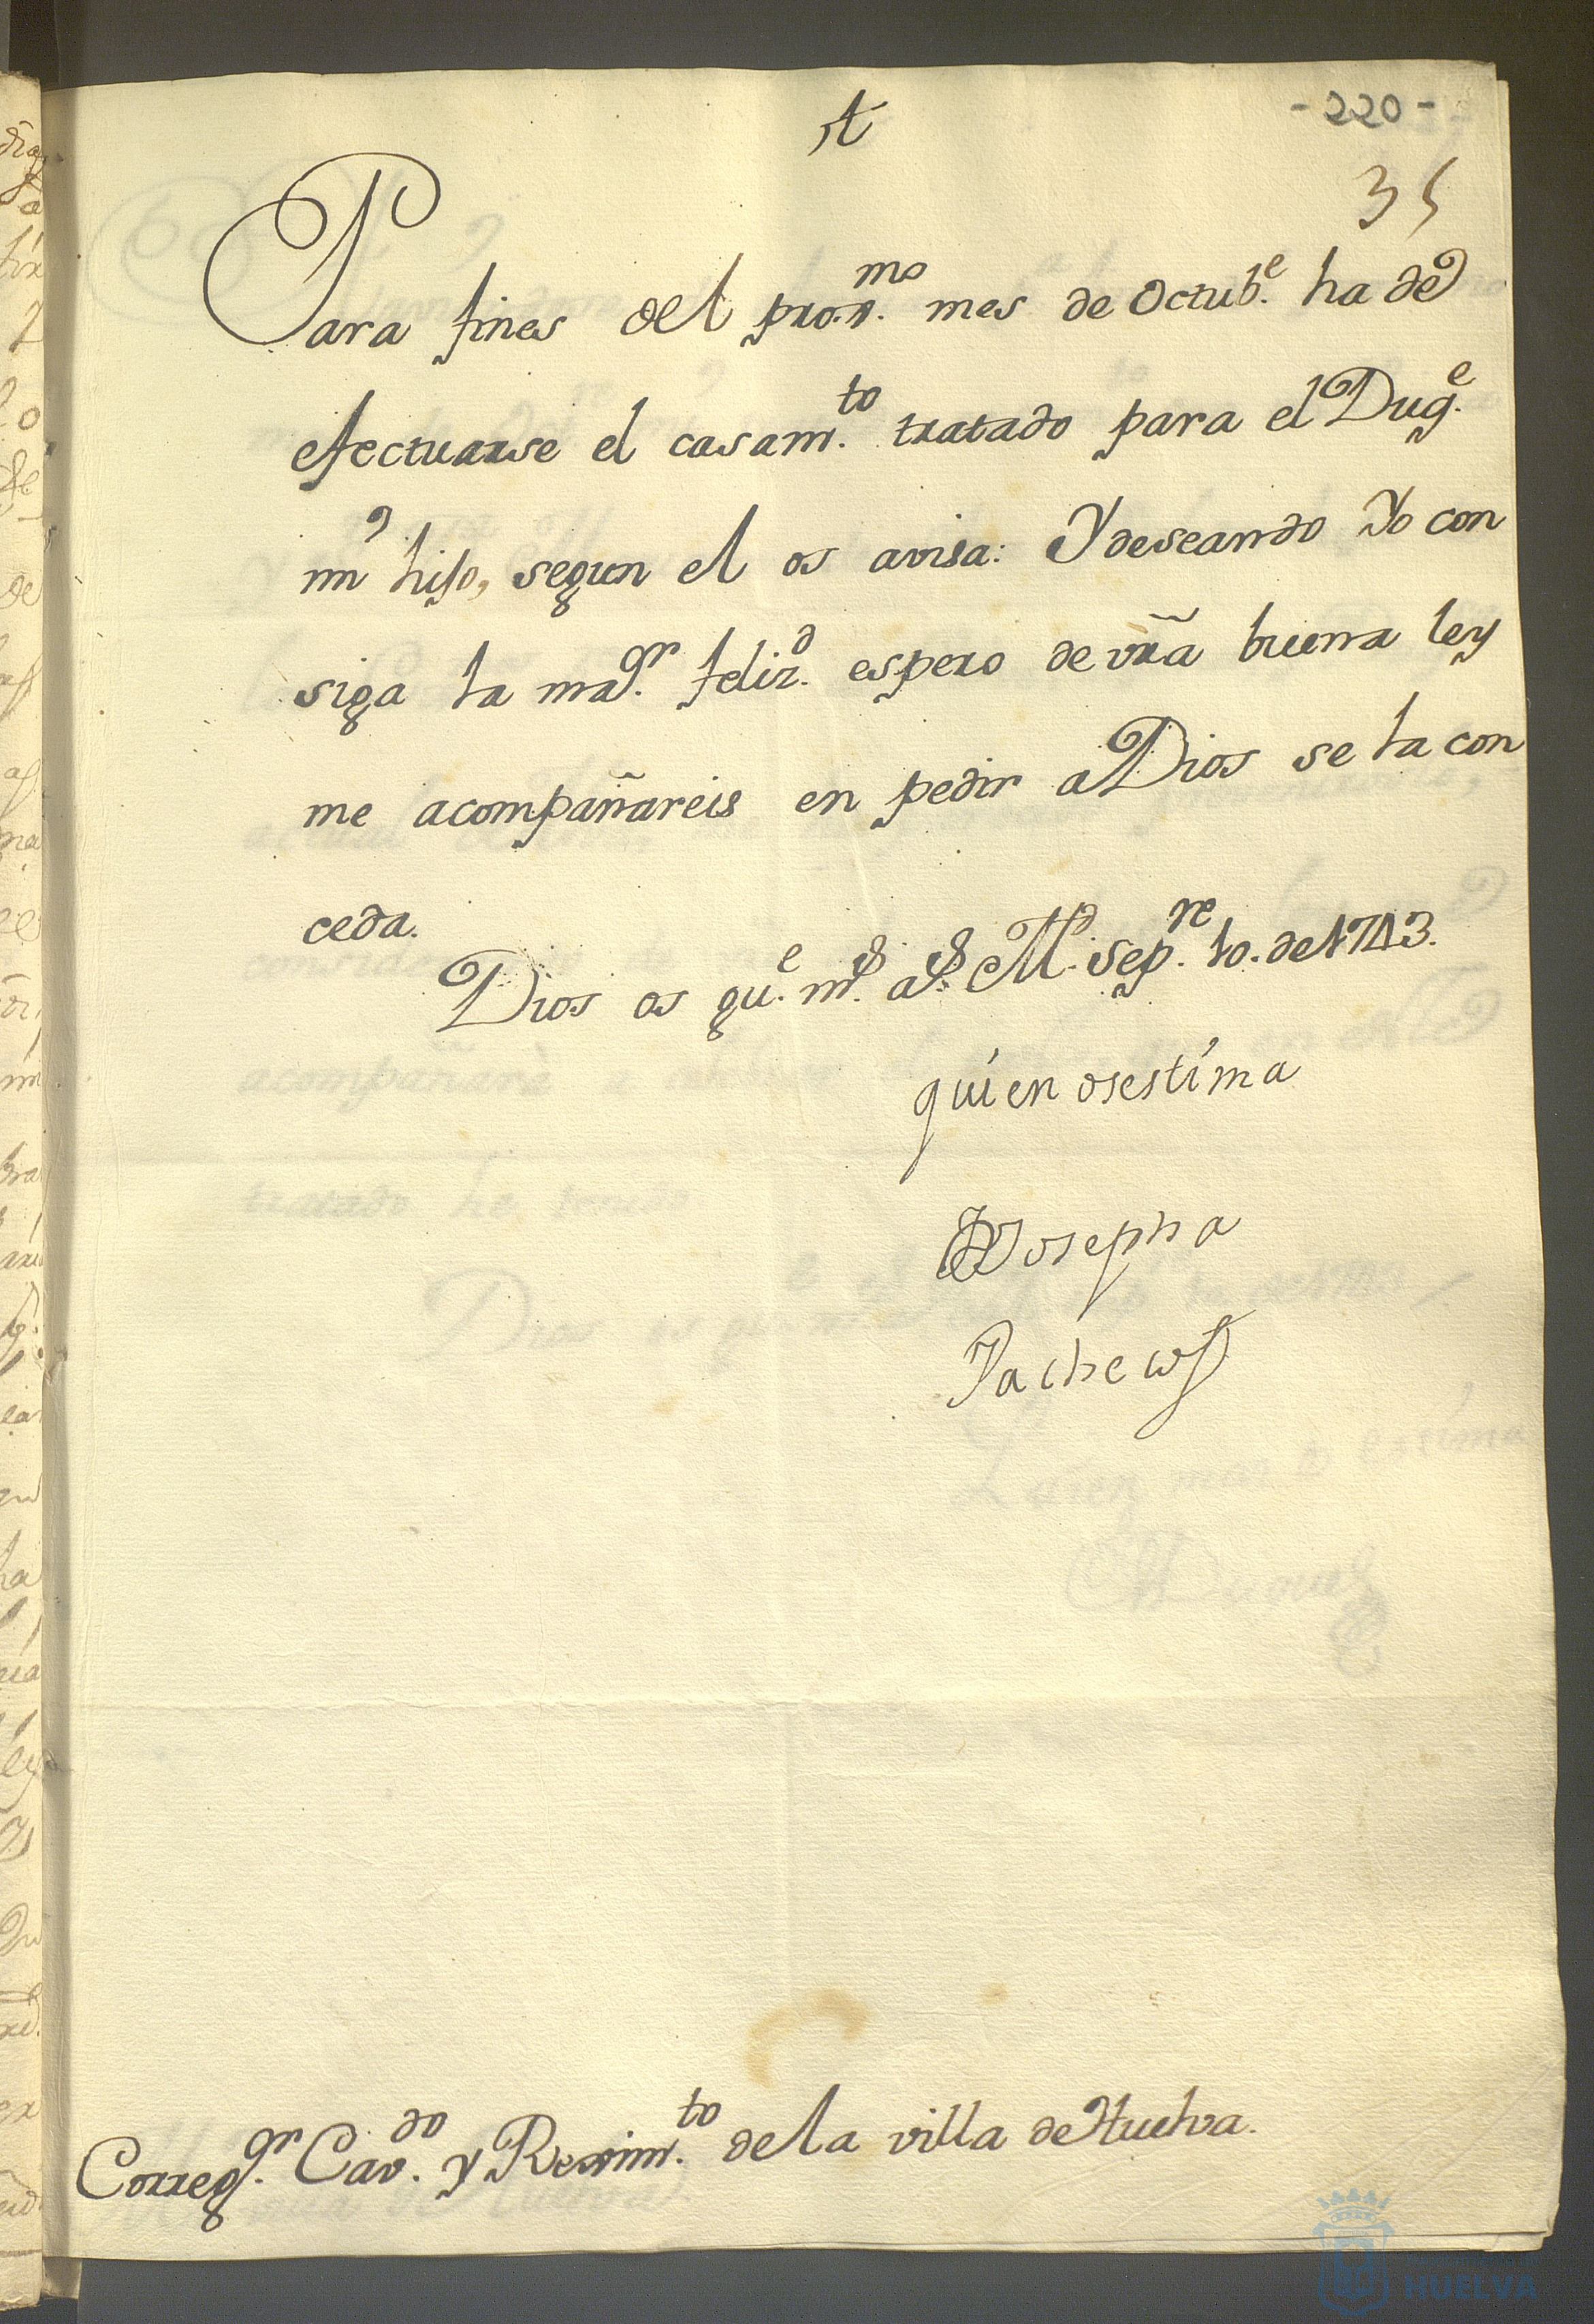 - 220 -
35
Para fines del pro.x.mo mes de Octub.e ha de
efectuarse el casam.to tratado para el Duq.e
mi hijo, segun el os avisa: Y deseando Yo con
siga la ma.gr feliz.d espero de vrã buena ley
me acompañareis en pedir a Dios se la con
ceda.
Dios os gu.e m.s a.s M.d Sep.re 10. de 1743.
quien os estima
Josepha
Pacheco
Correg.gr Cav.do y Reximi.to de la villa de Huelva.
HUELVA